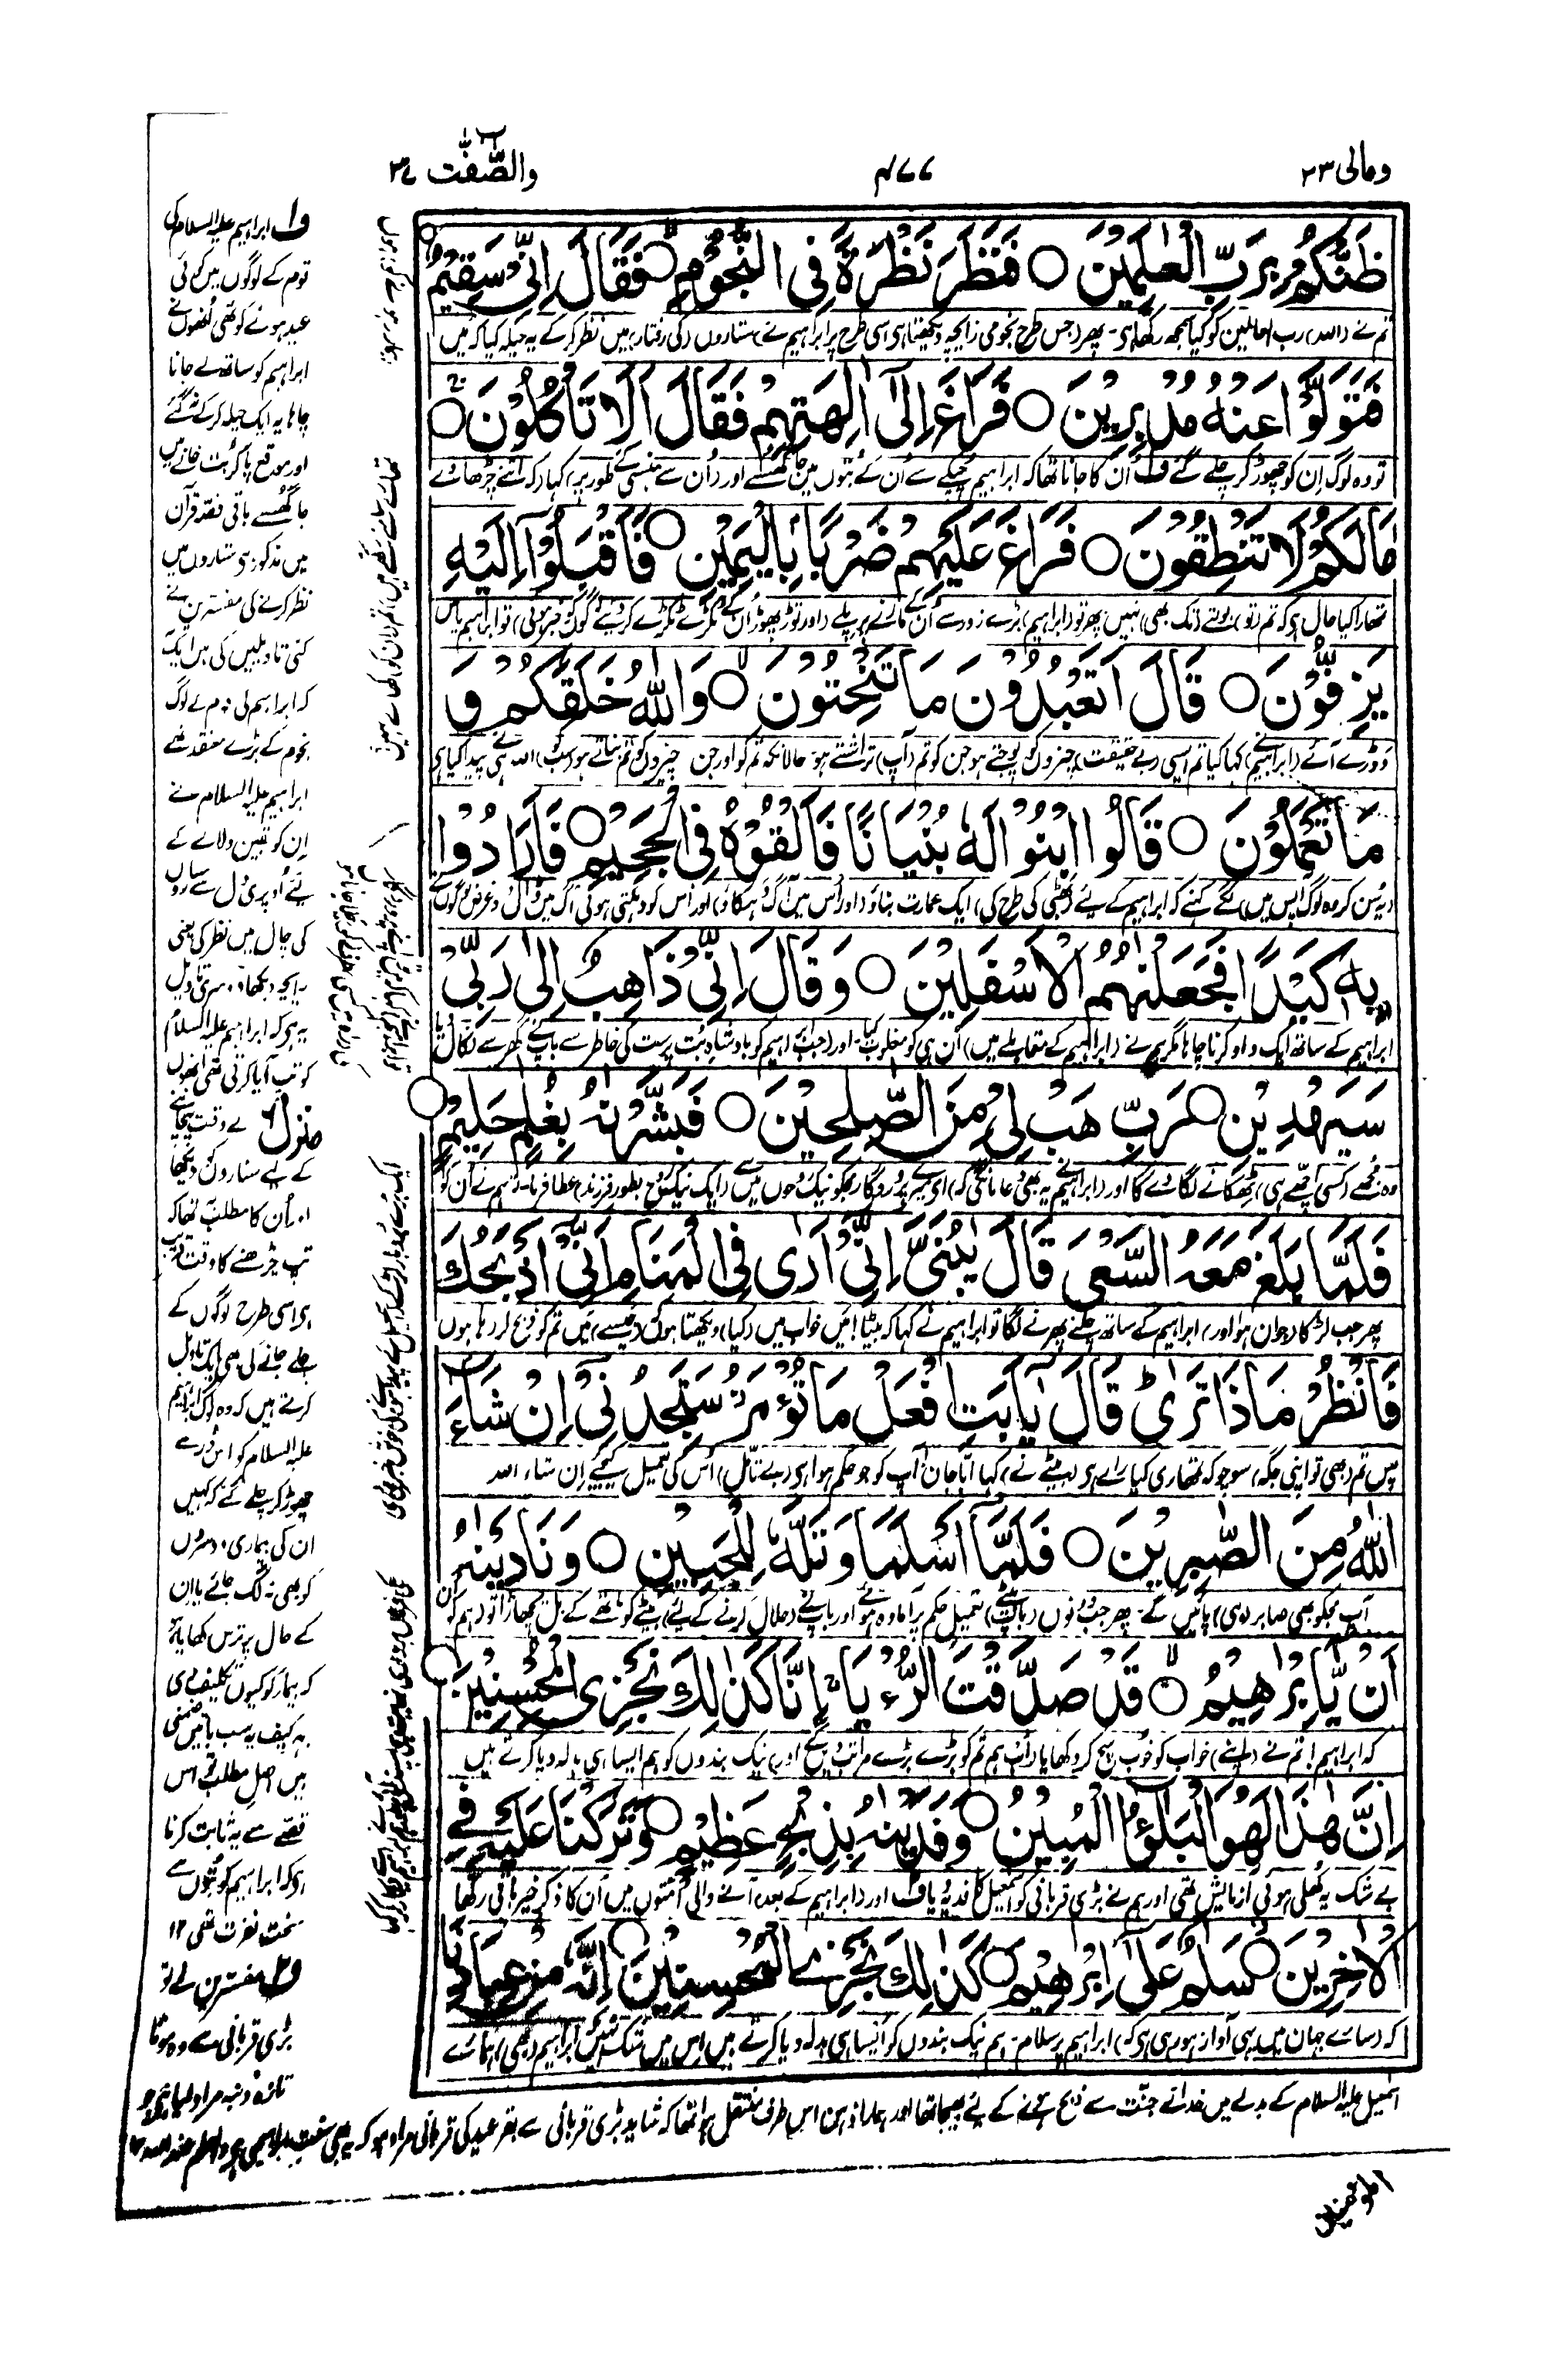 ومالی ۲۳
۴۷۷
والصّٰفّٰت ۳۷
ظَنُّكُمْ بِرَبِّ الْعٰلَمِيْنَ ○ فَنَظَرَ نَظْرَةً فِى النُّجُوْمِ ○ فَقَالَ اِنِّىْ سَقِيْمٌ ○
تم نے (اللہ) رب العالمین کو کیا سمجھ رکھا ہی۔ پھر (جس طرح نجومی زائچہ دیکھتا ہی اسی طرح پر ابراہیم نے) ستاروں (کی رفتار) میں نظر کر کے یہ حیلہ کیا کہ میں
فَتَوَلَّوْا عَنْهُ مُدْبِرِيْنَ ○ فَرَاغَ اِلٰٓى اٰلِهَتِهِمْ فَقَالَ اَلَا تَاْكُلُوْنَ ○
تو وہ لوگ ان کو چھوڑ کر چلے گئے ف۱ اُن کا جانا تھا کہ ابراہیم چپکے سے اُن کے بُتوں میں جا گھسے اور (اُن سے ہنسی کے طور پر) کہا (کہ اتنے چڑھاوے
مَا لَكُمْ لَا تَنْطِقُوْنَ ○ فَرَاغَ عَلَيْهِمْ ضَرْبًۢا بِالْيَمِيْنِ ○ فَاَقْبَلُوْٓا اِلَيْهِ
تمھارا کیا حال ہی کہ تم (تو) بولتے (تک بھی) نہیں پھر تو (ابراہیم) بڑے زور سے اُن کے مارنے پر پلے (اور توڑ پھوڑ اُن کے ٹکڑے ٹکڑے کر دیے لوگوں کو خبر ہوئی) تو ابراہیم پاس
يَزِفُّوْنَ ○ قَالَ اَتَعْبُدُوْنَ مَا تَنْحِتُوْنَ ○ وَاللّٰهُ خَلَقَكُمْ وَ
دوڑے آئے (ابراہیم نے) کہا کیا تم ایسی (بے حقیقت) چیزوں کو پوجتے ہو جن کو تم (آپ) تراشتے ہو۔ حالانکہ تم کو اور جن چیزوں کو تم بناتے ہو (سب کو) اللہ ہی نے پیدا کیا ہی
مَا تَعْمَلُوْنَ ○ قَالُوا ابْنُوْا لَهٗ بُنْيَانًا فَاَلْقُوْهُ فِى الْجَحِيْمِ ○ فَاَرَادُوْا
(یہ سن کر وہ لوگ آپس میں) لگے کہنے کہ ابراہیم کے لیے (بھٹی کی طرح کی) ایک عمارت بناؤ (اور اُس میں آگ دہکاؤ) اور اُس کو دہکتی ہوئی آگ میں ڈال دو غرض لوگوں نے
بِهٖ كَيْدًا فَجَعَلْنٰهُمُ الْاَسْفَلِيْنَ ○ وَقَالَ اِنِّىْ ذَاهِبٌ اِلٰى رَبِّىْ
ابراہیم کے ساتھ ایک داؤ کرنا چاہا مگر ہم نے (ابراہیم کے مقابلے میں) اُن ہی کو مغلوب کیا۔ اور (جب) ابراہیم کو بادشاہ بُت پرست کی خاطر سے باپ نے گھر سے نکال
سَيَهْدِيْنِ ○ رَبِّ هَبْ لِىْ مِنَ الصّٰلِحِيْنَ ○ فَبَشَّرْنٰهُ بِغُلٰمٍ حَلِيْمٍ ○
وہ مجھے (کسی اچھے ہی) ٹھکانے لگا دے گا اور (ابراہیم نے یہ بھی دعا مانگی کہ) ای میرے پروردگار مجھکو نیک روحوں میں سے (ایک نیک روح بطور فرزند) عطا فرما۔ تو ہم نے اُن کو
فَلَمَّا بَلَغَ مَعَهُ السَّعْىَ قَالَ يٰبُنَىَّ اِنِّىْٓ اَرٰى فِى الْمَنَامِ اَنِّىْٓ اَذْبَحُكَ
پھر جب لڑکا (جوان ہوا اور) ابراہیم کے ساتھ چلنے پھرنے لگا تو ابراہیم نے کہا کہ بیٹا! میں خواب میں (کیا) دیکھتا ہوں کہ (جیسے) میں تم کو ذبح کر رہا ہوں
فَانْظُرْ مَاذَا تَرٰى ؕ قَالَ يٰٓاَبَتِ افْعَلْ مَا تُؤْمَرُ سَتَجِدُنِىْٓ اِنْ شَآءَ
پس تم (بھی تو اپنی جگہ) سوچو کہ تمھاری کیا راے ہی (بیٹے نے) کہا اباجان! آپ کو جو حکم ہوا ہی (بے تأمل) اُس کی تعمیل کیجیے ان شاء اللہ
اللّٰهُ مِنَ الصّٰبِرِيْنَ ○ فَلَمَّآ اَسْلَمَا وَتَلَّهٗ لِلْجَبِيْنِ ○ وَنَادَيْنٰهُ
آپ مجکو بھی صابر (ہی) پائیں گے۔ پھر جب دونوں (باپ بیٹے) تعمیل حکم پر آمادہ ہوئے اور باپ نے (حلال کرنے کے لیے) بیٹے کو ماتھے کے بل پچھاڑا تو ہم نے اُن کو
اَنْ يّٰٓاِبْرٰهِيْمُ ○ قَدْ صَدَّقْتَ الرُّءْيَا ۚ اِنَّا كَذٰلِكَ نَجْزِى الْمُحْسِنِيْنَ ○
کہ ابراہیم! تم نے (اپنے) خواب کو خوب سچ کر دکھایا (اب ہم تم کو بڑے بڑے مراتب دیں گے اور) نیک بندوں کو ہم ایسا ہی بدلہ دیا کرتے ہیں
اِنَّ هٰذَا لَهُوَ الْبَلٰٓؤُا الْمُبِيْنُ ○ وَفَدَيْنٰهُ بِذِبْحٍ عَظِيْمٍ ○ وَتَرَكْنَا عَلَيْهِ فِى
بے شک یہ کھلی ہوئی آزمایش تھی اور ہم نے بڑی قربانی کو اسمٰعیل کا فدیہ دیا ف۲ اور (ابراہیم کے بعد) آنے والی اُمتوں میں اُن کا ذکر خیر باقی رکھا
الْاٰخِرِيْنَ ○ سَلٰمٌ عَلٰٓى اِبْرٰهِيْمَ ○ كَذٰلِكَ نَجْزِى الْمُحْسِنِيْنَ ○ اِنَّهٗ مِنْ عِبَادِنَا
کہ (سارے جہان میں یہی آواز ہو رہی ہی کہ) ابراہیم پر سلام۔ ہم نیک بندوں کو ایسا ہی بدلہ دیا کرتے ہیں اِس میں شک نہیں کہ ابراہیم (بھی) ہمارے
ف۱ ابراہیم علیہ السلام کی
قوم کے لوگوں میں کوئی
عید ہونے کو تھی اُنھوں نے
ابراہیم کو ساتھ لے جانا
چاہا یہ ایک حیلہ کر کے رُک گئے
اور موقع پا کر بُت خانے میں
جا گھسے باقی قصہ قرآن
میں مذکور ہی ستاروں میں
نظر کرنے کی مفسرین نے
کئی تاویلیں کی ہیں ایک
کہ ابراہیم کی قوم کے لوگ
نجوم کے بڑے معتقد تھے
ابراہیم علیہ السلام نے
اِن کو یقین دلانے کے
لیے اوپری دل سے ستاروں
کی چال میں نظر کی یعنی
زایچہ دیکھا دوسری تاویل
یہ ہی کہ ابراہیم علیہ السلام
کو تپ آیا کرتی تھی اُنھوں
نے وقت پہچاننے
منزل ۶
کے لیے ستاروں کو دیکھا
اور اُن کا مطلب تھا کہ
تپ چڑھنے کا وقت قریب
ہی اسی طرح لوگوں کے
چلے جانے کی بھی ایک تاویل
کرتے ہیں کہ وہ لوگ ابراہیم
علیہ السلام کو اس ڈر سے
چھوڑ کر چلے گئے کہ کہیں
ان کی بیماری دوسروں
کو بھی نہ لگ جائے یا ان
کے حال پر ترس کھایا
کہ بیمار کو کیوں تکلیف دی
بہر کیف یہ سب باتیں ضمنی
ہیں اصل مطلب تو اس
قصے سے یہ ثابت کرنا
ہی کہ ابراہیم کو بُتوں سے
سخت نفرت تھی ۱۲
ف۲ مفسرین نے تو
بڑی قربانی سے وہ موٹا
تازہ دنبہ مراد لیا ہی جو
اسمٰعیل علیہ السلام کے بدلے میں خدا نے جنّت سے ذبح ہونے کے لیے بھیجا تھا اور ہمارا ذہن اس طرف منتقل ہوا تھا کہ شاید بڑی قربانی سے بقر عید کی قربانی مراد ہو کہ یہ بھی سنت ابراہیمی ہی والعلم عند اللہ ۱۲
المؤمنین